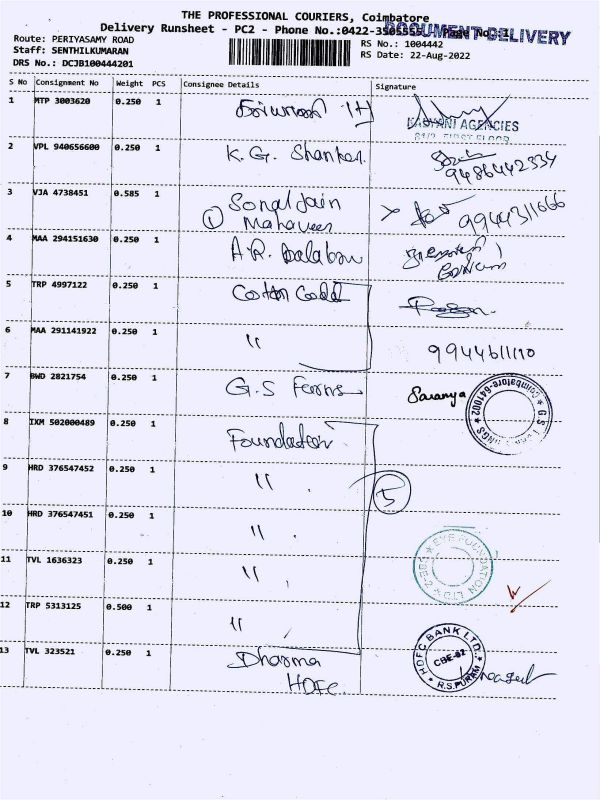 THE PROFESSIONAL COURIERS, Coimbatore
Delivery Runsheet - PC2 - Phone No.:0422-3505555 Page No. 1
DOCUMENT DELIVERY
Route: PERIYASAMY ROAD
RS No.: 1004442
Staff: SENTHILKUMARAN
RS Date: 22-Aug-2022
DRS No.: DCJB100444201
S No Consignment No Weight PCS Consignee Details Signature
1 MTP 3003620 0.250 1
AGENCIES
81/2, FIRST FLOOR
2 VPL 940656600 0.250 1 K.G. Shanker
9486442334
3 VJA 4738451 0.585 1 Sonal Jain
1 Mahaveer
9944311666
4 MAA 294151630 0.250 1 A.R.
5 TRP 4997122 0.250 1 Cotton
6 MAA 291141922 0.250 1 "
9944611110
7 BWD 2821754 0.250 1 G.S
Saranya
Coimbatore-641002 ★ G.S
8 IXM 502000489 0.250 1 Foundation
9 HRD 376547452 0.250 1 "
5
10 HRD 376547451 0.250 1 "
11 TVL 1636323 0.250 1 "
EYE FOUNDATION LTD ★ CBE-2 ★
12 TRP 5313125 0.500 1 "
13 TVL 323521 0.250 1 Dharma
HDFC.
HDFC BANK LTD. ★ R.S.PURAM ★
CBE-02